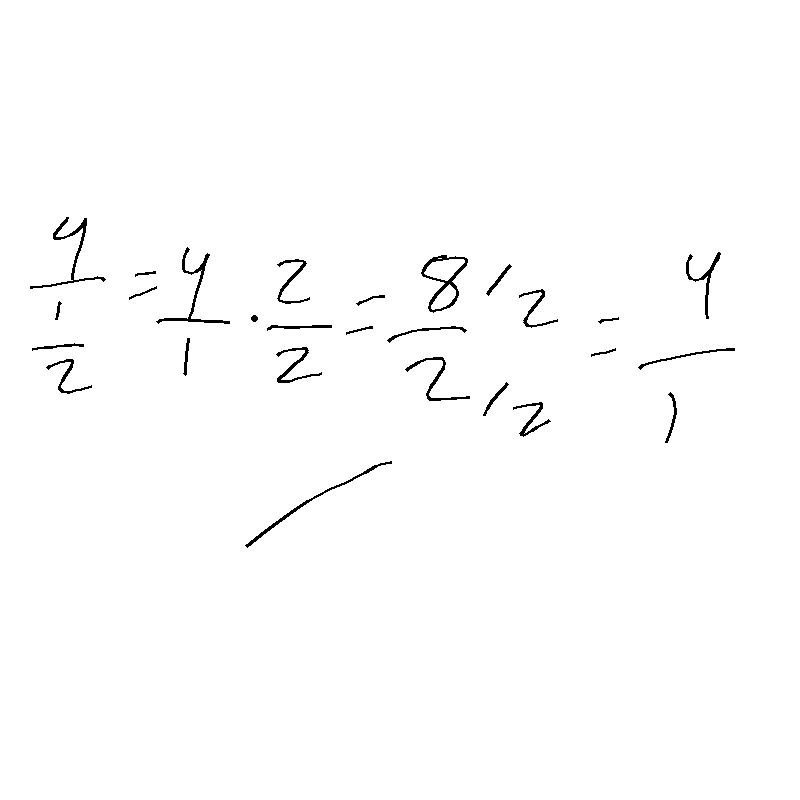 4/(1/2) = 4/1 · 2/2 = 8/2 / 2/2 = 4/1